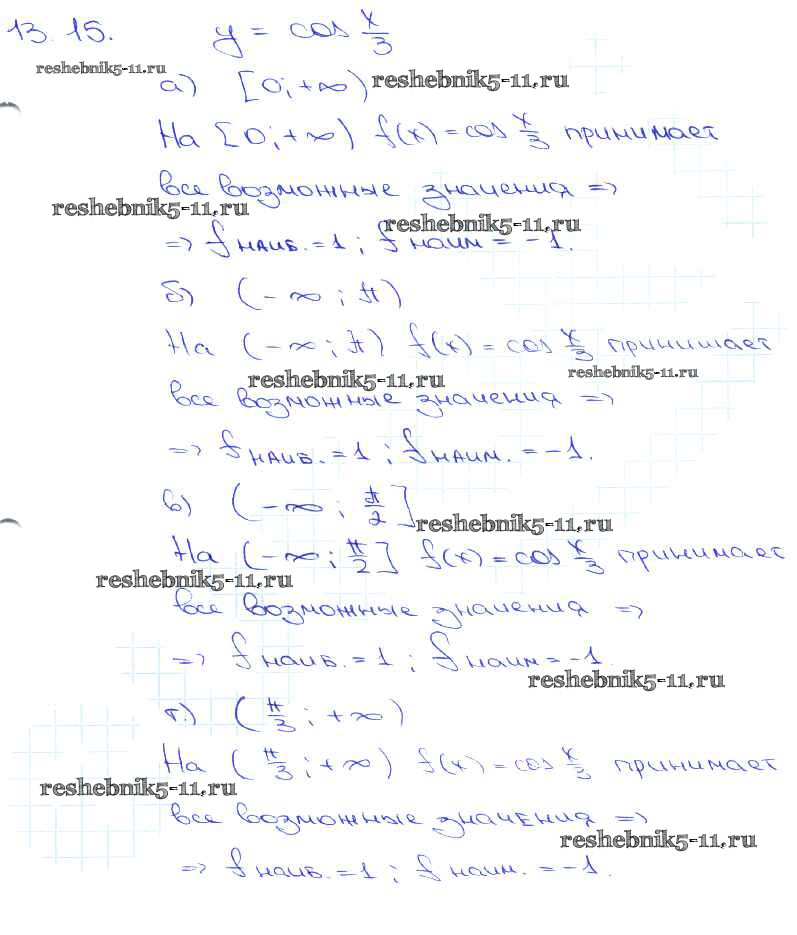 13.15. y = cos x/3
reshebnik5-11.ru
а) [0; +∞) reshebnik5-11.ru
На [0; +∞) f(x) = cos x/3 принимает
все возможные значения =>
reshebnik5-11.ru
reshebnik5-11.ru
=> f наиб. = 1 ; f наим = -1.
б) (-∞ ; π)
На (-∞ ; π) f(x) = cos x/3 принимает
reshebnik5-11.ru reshebnik5-11.ru
все возможные значения =>
=> f наиб. = 1 ; f наим. = -1.
в) (-∞ ; π/2]
reshebnik5-11.ru
На (-∞ ; π/2] f(x) = cos x/3 принимает
reshebnik5-11.ru
все возможные значения =>
=> f наиб. = 1 ; f наим = -1
reshebnik5-11.ru
г.) (π/3 ; +∞)
На (π/3 ; +∞) f(x) = cos x/3 принимает
reshebnik5-11.ru
все возможные значения =>
reshebnik5-11.ru
=> f наиб. = 1 ; f наим. = -1.